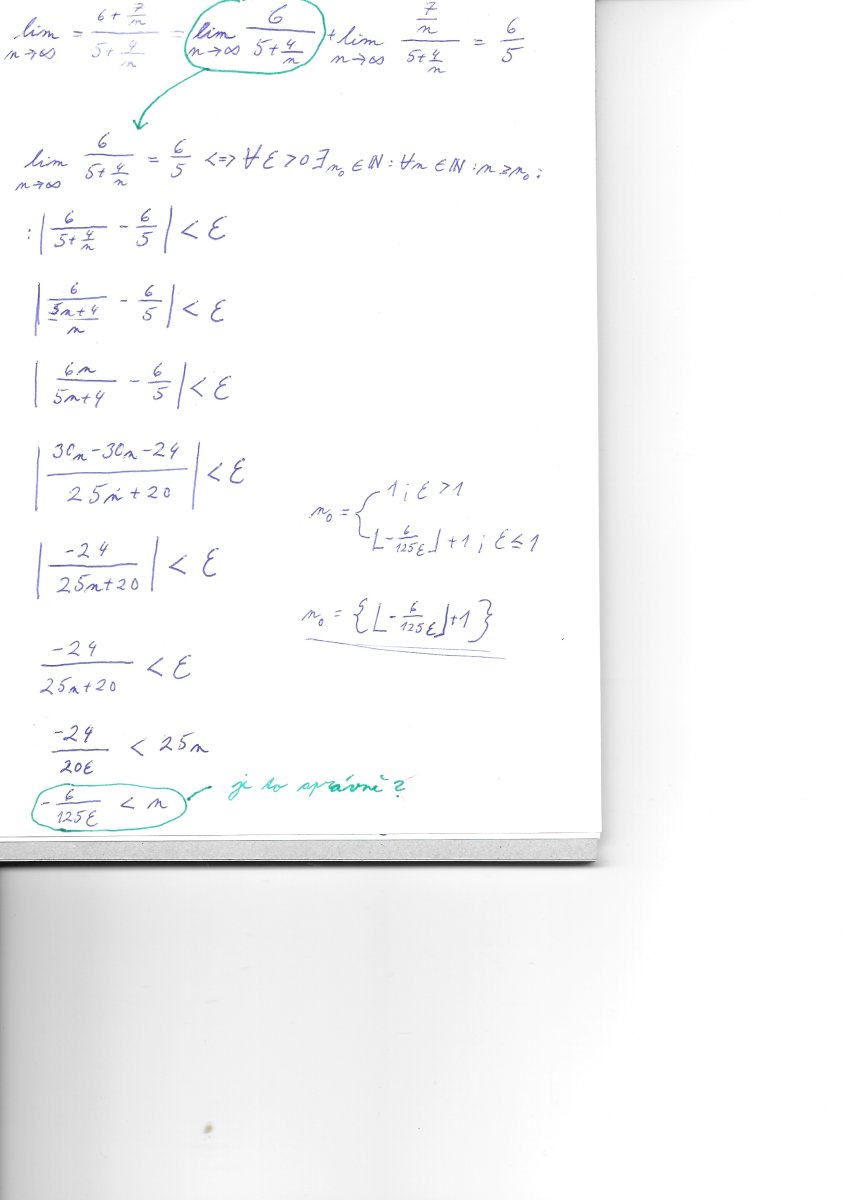 lim n→∞ = (6 + 7/n)/(5 + 4/n) = lim n→∞ 6/(5 + 4/n) + lim n→∞ (7/n)/(5 + 4/n) = 6/5
lim n→∞ 6/(5 + 4/n) = 6/5 <=> ∀ε > 0 ∃n₀ ∈ ℕ : ∀n ∈ ℕ : n ≥ n₀ :
: |6/(5 + 4/n) - 6/5| < ε
|6/((5n+4)/n) - 6/5| < ε
|6n/(5n+4) - 6/5| < ε
|(30n-30n-24)/(25n+20)| < ε
n₀ = { 1 ; ε > 1
⌊-6/(125ε)⌋ + 1 ; ε ≤ 1
|-24/(25n+20)| < ε
n₀ = {⌊-6/(125ε)⌋+1}
-24/(25n+20) < ε
-24/(20ε) < 25n
-6/(125ε) < n je to správně?